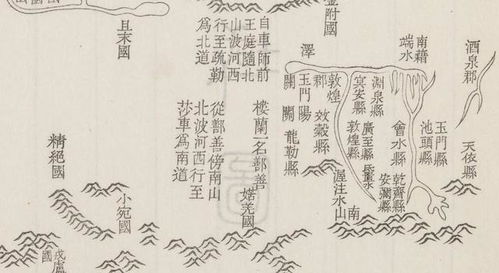 酒泉郡
天依縣
玉門縣
池頭縣
南藉
端水
會水縣
乾齊縣
安瀰縣
淵泉縣
廣至縣
冥安縣
敦煌縣
南
渥洼水山
敦煌
郡
效穀縣
玉門陽
關
關
龍勒縣
澤
樓蘭一名鄯善
婼羌國
自車師前
王庭隨北
山波河西
行至疏勒
爲北道
從鄯善傍南山
北波河西行至
莎車爲南道
且末國
小宛國
精絕國
戎盧
國